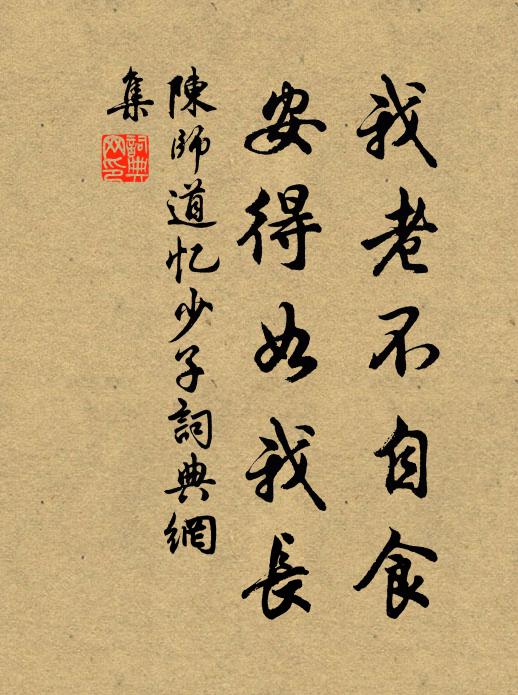 我老不自食
安得如我長
陳師道忆少子詞典網
集
詞典
网印